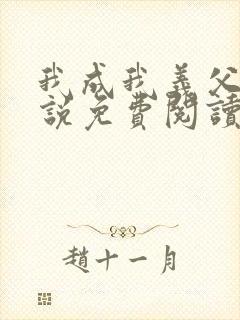 我成我義父
說免費閱讀
趙十一月